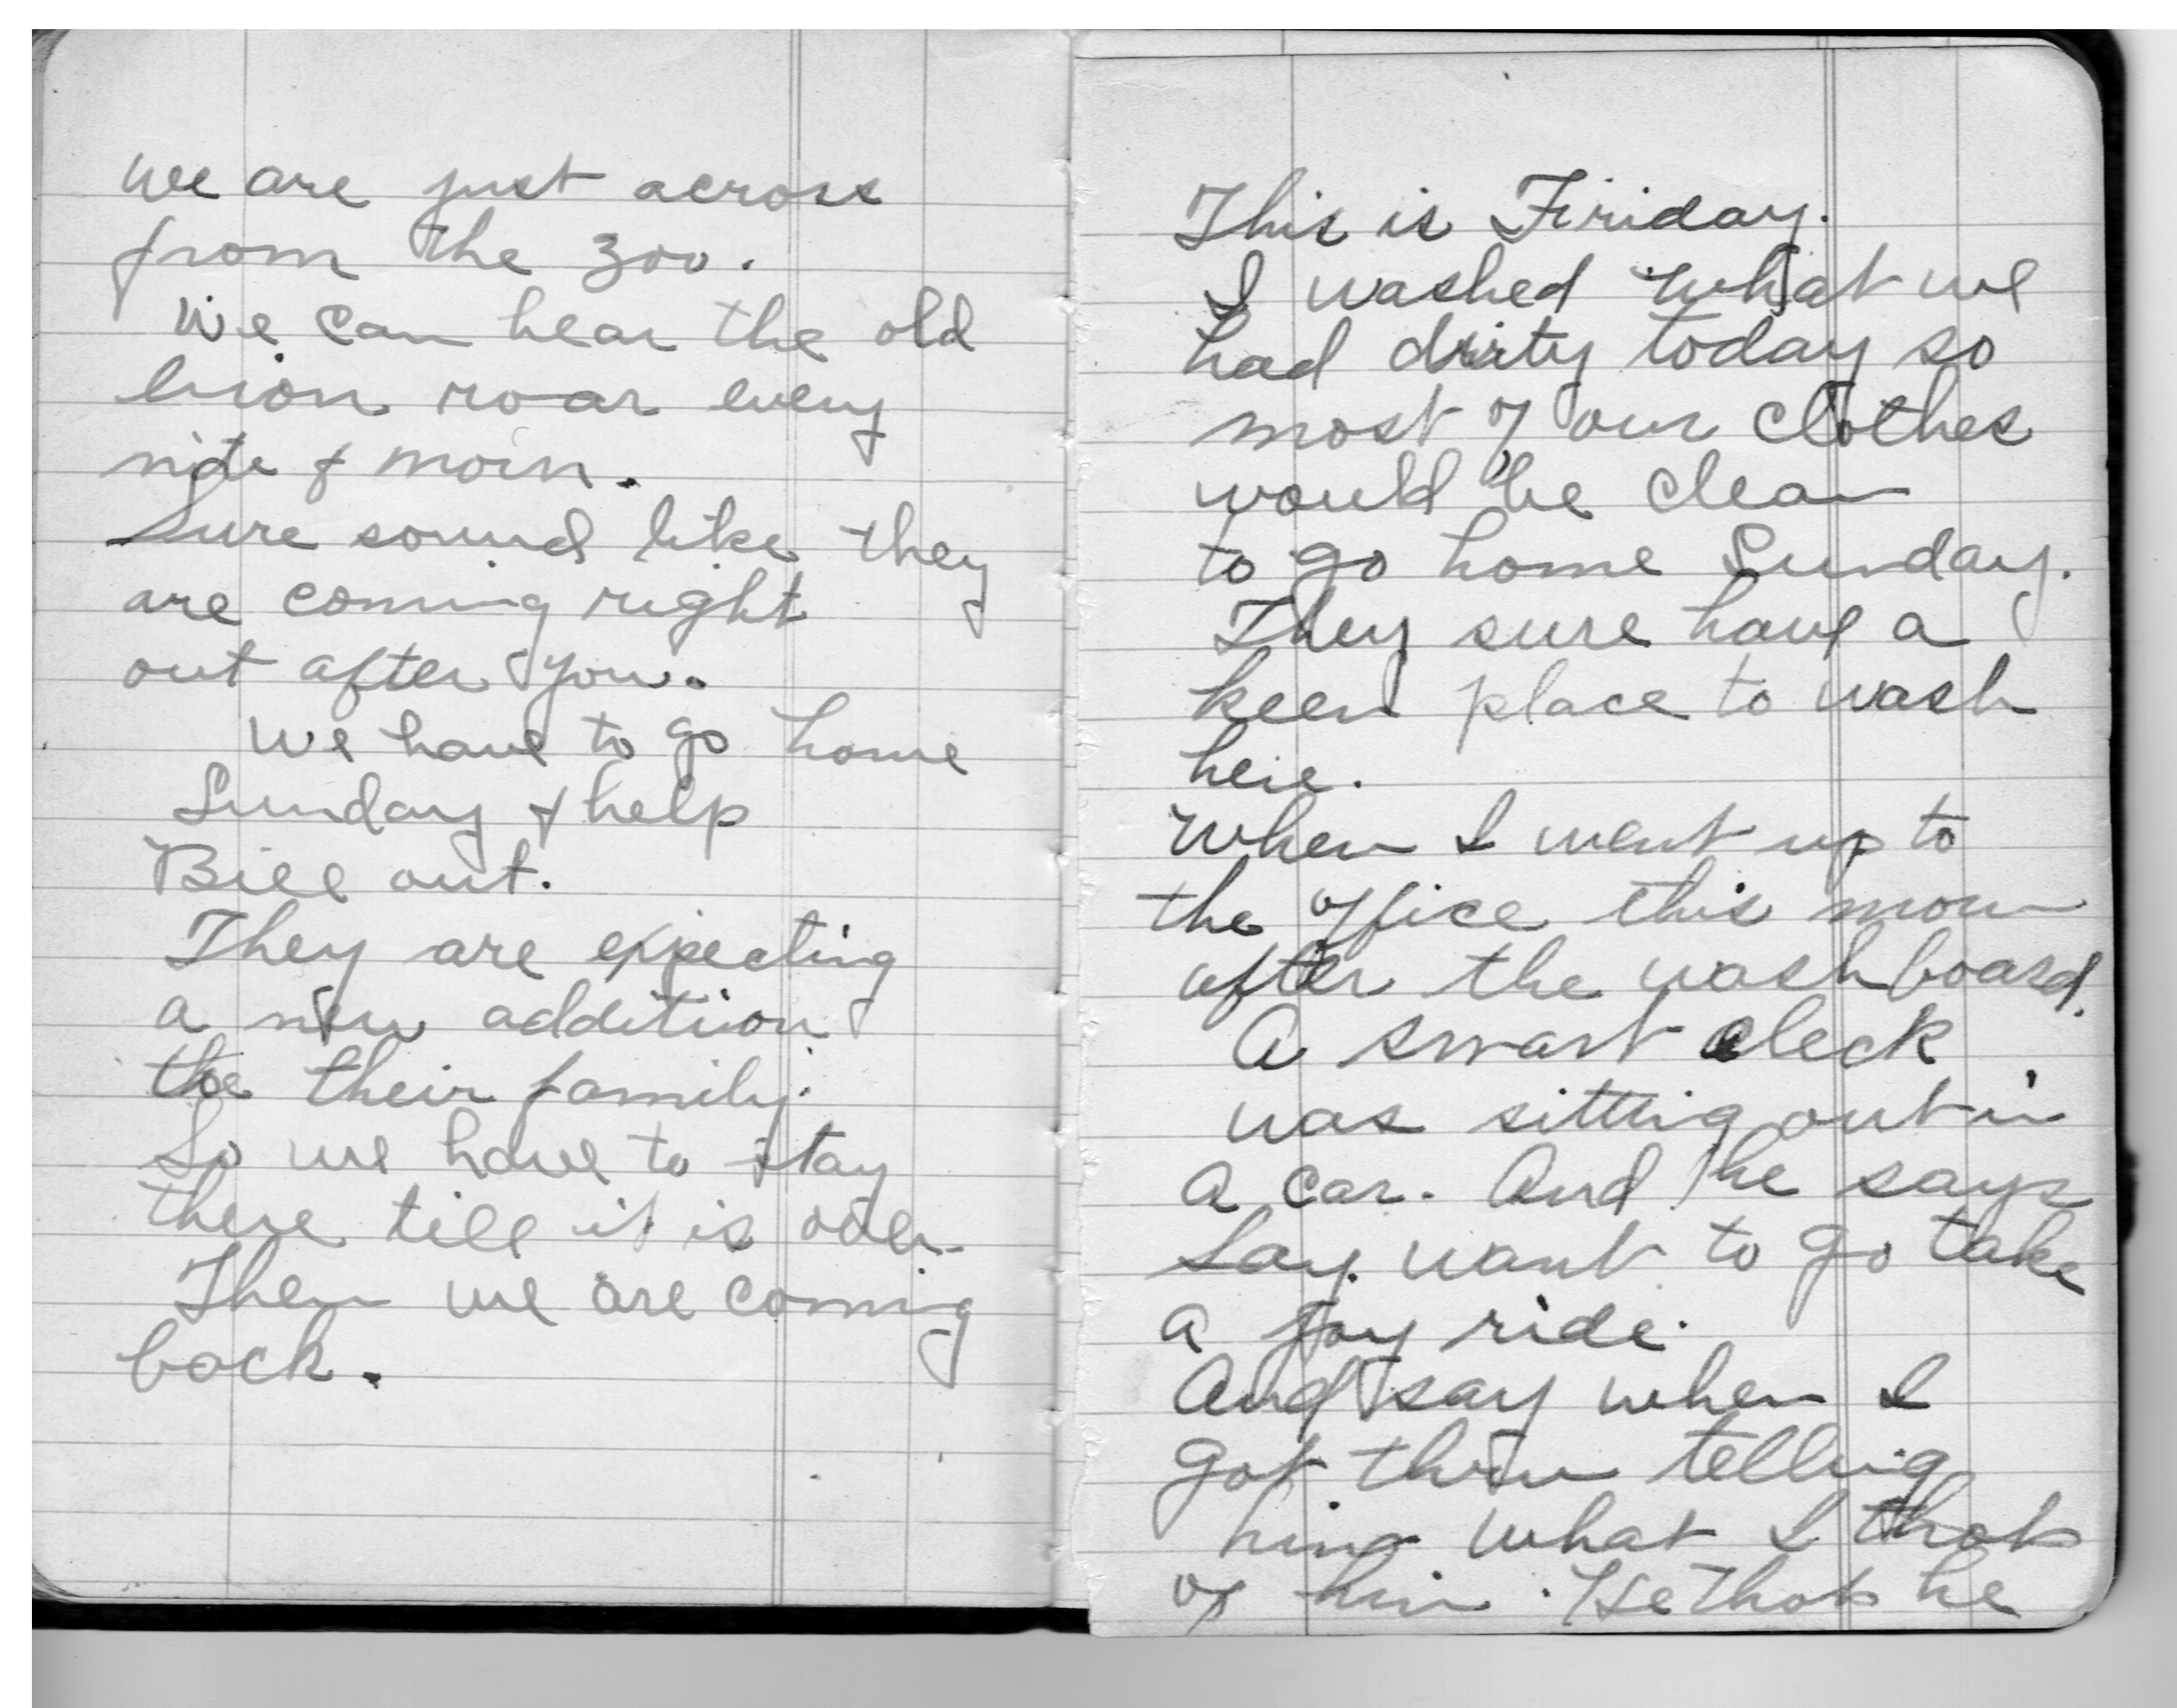 We are just across
from the zoo.
We can hear the old
lion roar every
nite & morn.
Sure sound like they
are coming right
out after you.
We have to go home
Sunday & help
Bill out.
They are expecting
a new addition
the their family.
So we have to stay
there till it is over.
Then we are coming
back.
This is Firiday.
I washed what we
had dirty today so
most of our clothes
would be clean
to go home Sunday.
They sure have a
keen place to wash
here.
When I went up to
the office this morn
after the washboard.
A smart aleck
was sitting out in
a car. And he says
Say want to go take
a joy ride.
And say when I
got thru telling
him what I thot
of him. He thot he